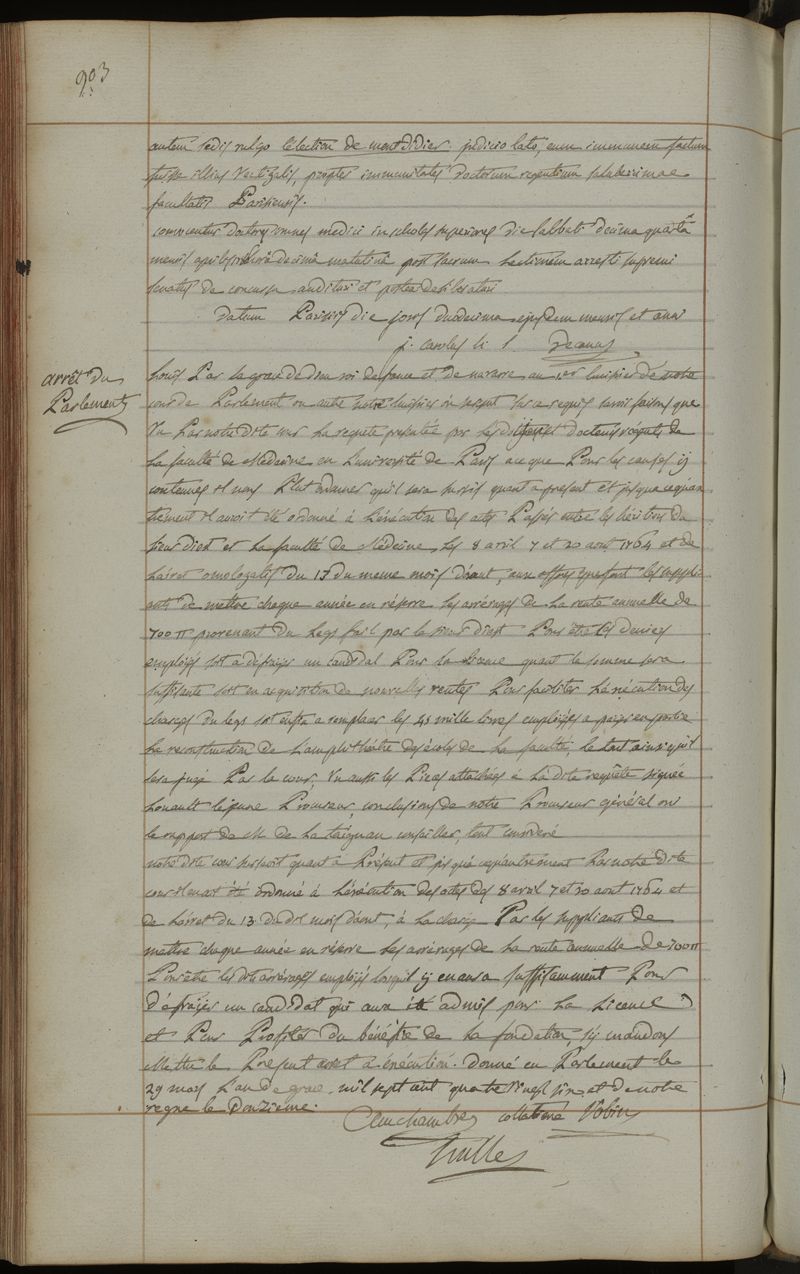 903
autem sedis vulgo l'élection de montdidier judicio lato, eum immunem factum
fuisse illius vectigalis, propter immunitates doctorum regentium saluberrimae
facultatis Parisiensis.
convenientur doctores omnes medici in scholis superiores die sabbati decima quarta
mensis aprilis hora decima matutina post sacrum lectionem arresti supremi
senatus de concursu audituri et postea deliberaturi
datum Parisiis die jovis duodecima ejusdem mensis et anni
j. carolus decanus
arrêt du
Parlement
Louis Par la grace de dieu roi de france et de navarre au 1er huissier de notre
cour de Parlement ou autre notre huissier sur ce requis savoir faisons que
vu Par notre dite cour la requete presentée par les doyen et docteurs régents de
la faculté de Medecine en l'université de Paris a ce que Pour les causes y
contenues il nous Plut ordonner qu'il sera sursis quant a present et jusqu'a ce qu'au-
trement il auroit été ordonné à l'exécution des actes Passés entre les héritiers du
sieur diest et la faculté de Médecine, les 8 avril 7 et 20 aout 1764 et de
l'arret omologatif du 13 du meme mois d'aout, aux offres que font les suppli-
ants de mettre chaque année en réserve les arrérages de la rente annuelle de
700 ₶ provenant du legs fait par le sieur diest Pour être les deniers
employés soit a défrayer un candidat Pour la licence quant la somme sera
suffisante soit en acquisition de nouvelles rentes Pour faciliter l'exécution des
charges du legs soit enfin a remplacer les 45 mille livres employées a payer en partie
la reconstruction de l'amphithéatre des écoles de la faculté, le tout ainsi qu'il
sera jugé Par la cour, vu aussi les Pieces attachées à la dite requête signée
Procureur, conclusions de notre Procureur général oui
le rapport de M. de conseiller, tout considéré
notre dite cour surseoit quant à Présent et jusqu'a ce qu'autrement Par notre dite
cour il en ait été ordonné à l'exécution des actes des 8 avril 7 et 20 aout 1764 et
de l'arret du 13 du dit mois d'aout, à la charge Par les suppliants de
mettre chaque année en réserve les arrérages de la rente annuelle de 700 ₶
Pour être les dits arrérages employés lorsqu'il y en aura suffisamment Pour
défrayer un candidat qui aura été admis pour la Licence
et Pour Profiter du bénéfice de la fondation, si mandons
Mettre le Present arret à exécution. donné en Parlement le
29 mars l'an de grace mil sept cent quatre vingt six et de notre
regne le Douzième.
Par chambre collationné